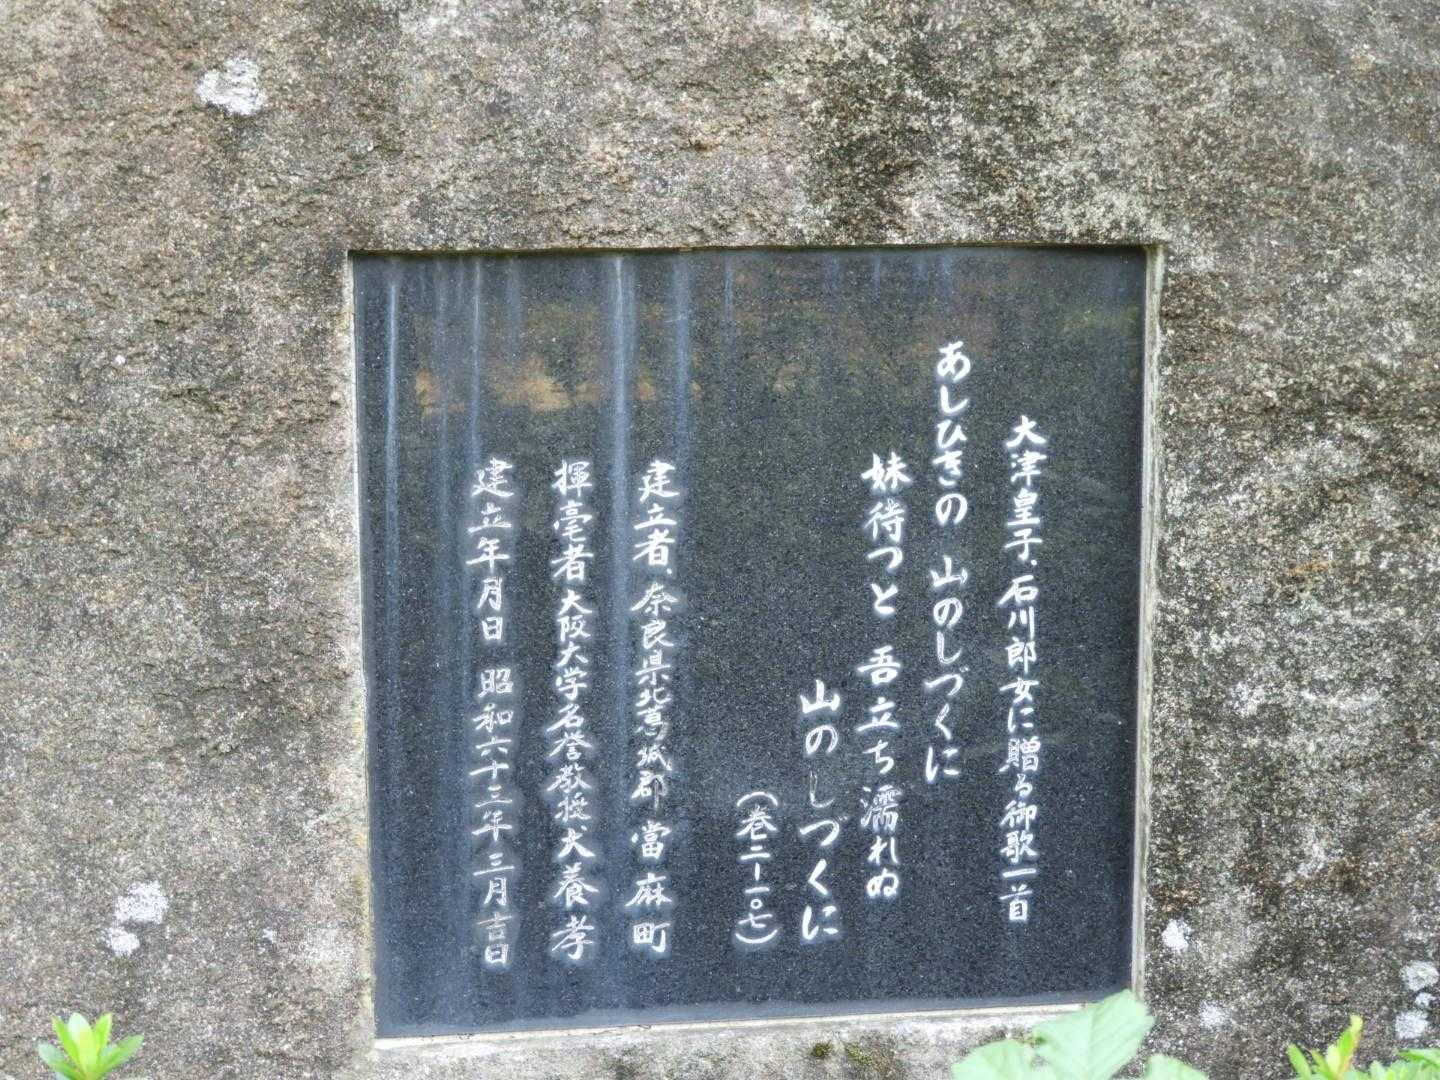 大津皇子、石川郎女に贈る御歌一首
あしひきの 山のしづくに
妹待つと 吾立ち濡れぬ
山のしづくに
(巻二ー一〇七)
建立者、奈良県北葛城郡當麻町
揮毫者大阪大学名誉教授犬養孝
建立年月日 昭和六十三年三月吉日